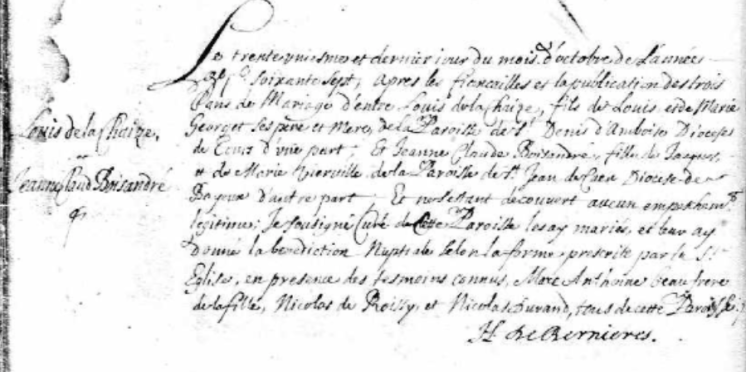 Louis de la Chaize,
et
Jeanne Claud Boisandré
Le trente vniesme et dernier jour du mois d'octobre de l'année
soixante sept, apres les fiançailles et la publication des trois
bans de Mariage d'entre Louis de la Chaize, fils de Louis et de Marie
Georget ses pere et Mere, de la Paroisse de St Denis d'Amboise Diocese
de Tours d'vne part; Et Jeanne Claude Boisandré, fille de Jacques,
et de Marie Vierville de la Paroisse de St Jean de Caen Diocese de
Bayeux d'autre part Et ne s'estant découvert aucun empeschemt
legitime; Je sousigné Curé de cette Paroisse les ay mariés, et leur ay
donné la benediction Nuptiale selon la forme prescrite par la Ste
Eglise, en presence des tesmoins connus, Marc Anthoine beau frere
de la fille, Nicolas de Roissy, et Nicolas Durand, tous de cette Paroisse
H. de Bernieres.